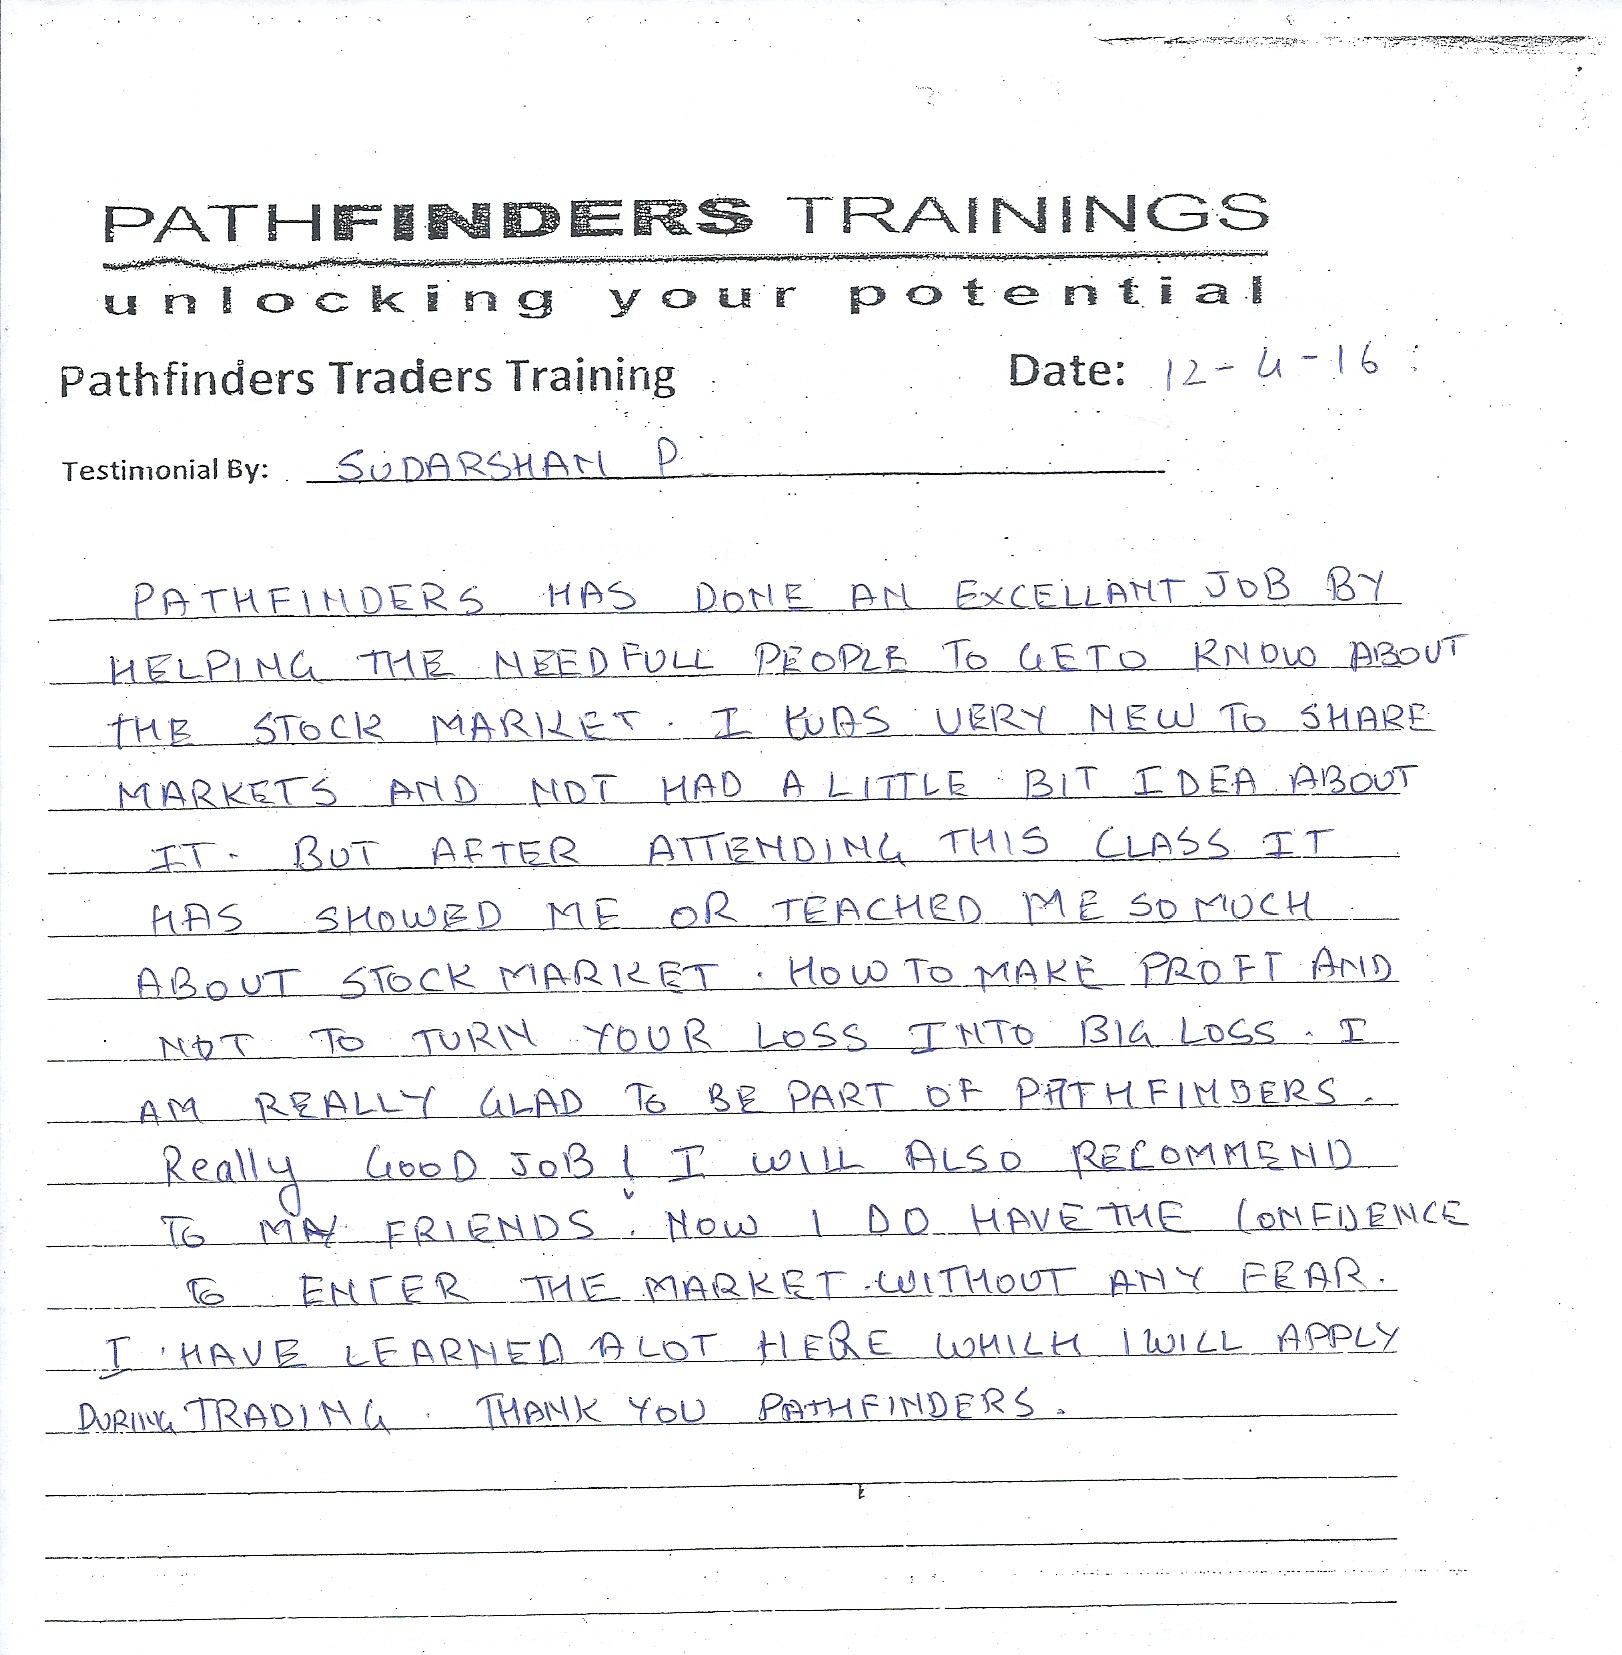 PATHFINDERS TRAININGS
unlocking your potential
Pathfinders Traders Training Date: 12-4-16
Testimonial By: SUDARSHAN P.
PATHFINDERS HAS DONE AN EXCELLANT JOB BY
HELPING THE NEEDFULL PEOPLE TO GETO KNOW ABOUT
THE STOCK MARKET. I WAS VERY NEW TO SHARE
MARKETS AND NOT HAD A LITTLE BIT IDEA ABOUT
IT. BUT AFTER ATTENDING THIS CLASS IT
HAS SHOWED ME OR TEACHED ME SO MUCH
ABOUT STOCK MARKET. HOW TO MAKE PROFT AND
NOT TO TURN YOUR LOSS INTO BIG LOSS. I
AM REALLY GLAD TO BE PART OF PATHFINDERS.
Really GOOD JOB! I WILL ALSO RECOMMEND
TO MY FRIENDS. NOW I DO HAVE THE CONFIDENCE
TO ENTER THE MARKET WITHOUT ANY FEAR.
I HAVE LEARNED A LOT HERE WHICH I WILL APPLY
DURING TRADING. THANK YOU PATHFINDERS.